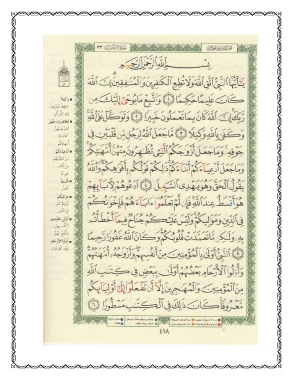 سورة الأحزاب ٣٣
بِسْمِ اللَّهِ الرَّحْمَٰنِ الرَّحِيمِ
يَا أَيُّهَا النَّبِيُّ اتَّقِ اللَّهَ وَلَا تُطِعِ الْكَافِرِينَ وَالْمُنَافِقِينَ إِنَّ اللَّهَ
كَانَ عَلِيمًا حَكِيمًا ١ وَاتَّبِعْ مَا يُوحَىٰ إِلَيْكَ مِن
رَّبِّكَ إِنَّ اللَّهَ كَانَ بِمَا تَعْمَلُونَ خَبِيرًا ٢ وَتَوَكَّلْ عَلَى اللَّهِ
وَكَفَىٰ بِاللَّهِ وَكِيلًا ٣ مَّا جَعَلَ اللَّهُ لِرَجُلٍ مِّن قَلْبَيْنِ فِي
جَوْفِهِ وَمَا جَعَلَ أَزْوَاجَكُمُ اللَّائِي تُظَاهِرُونَ مِنْهُنَّ أُمَّهَاتِكُمْ
وَمَا جَعَلَ أَدْعِيَاءَكُمْ أَبْنَاءَكُمْ ذَٰلِكُمْ قَوْلُكُم بِأَفْوَاهِكُمْ وَاللَّهُ
يَقُولُ الْحَقَّ وَهُوَ يَهْدِي السَّبِيلَ ٤ ادْعُوهُمْ لِآبَائِهِمْ
هُوَ أَقْسَطُ عِندَ اللَّهِ فَإِن لَّمْ تَعْلَمُوا آبَاءَهُمْ فَإِخْوَانُكُمْ
فِي الدِّينِ وَمَوَالِيكُمْ وَلَيْسَ عَلَيْكُمْ جُنَاحٌ فِيمَا أَخْطَأْتُم
بِهِ وَلَٰكِن مَّا تَعَمَّدَتْ قُلُوبُكُمْ وَكَانَ اللَّهُ غَفُورًا رَّحِيمًا
٥ النَّبِيُّ أَوْلَىٰ بِالْمُؤْمِنِينَ مِنْ أَنفُسِهِمْ وَأَزْوَاجُهُ أُمَّهَاتُهُمْ
وَأُولُو الْأَرْحَامِ بَعْضُهُمْ أَوْلَىٰ بِبَعْضٍ فِي كِتَابِ اللَّهِ
مِنَ الْمُؤْمِنِينَ وَالْمُهَاجِرِينَ إِلَّا أَن تَفْعَلُوا إِلَىٰ أَوْلِيَائِكُم
مَّعْرُوفًا كَانَ ذَٰلِكَ فِي الْكِتَابِ مَسْطُورًا ٦
٤١٨